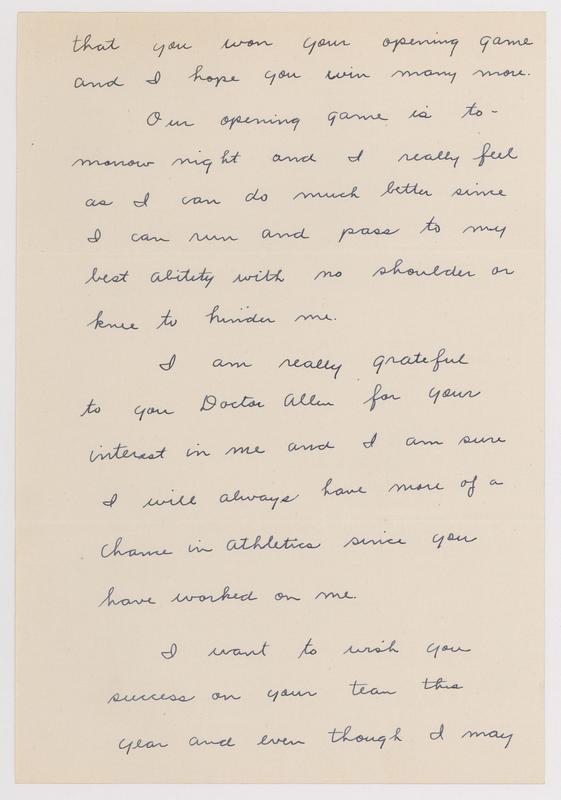 that you won your opening game
and I hope you win many more.
Our opening game is to-
morrow night and I really feel
as I can do much better since
I can run and pass to my
best ability with no shoulder or
knee to hinder me.
I am really grateful
to you Doctor Allen for your
interest in me and I am sure
I will always have more of a
chance in athletics since you
have worked on me.
I want to wish you
success on your team this
year and even though I may